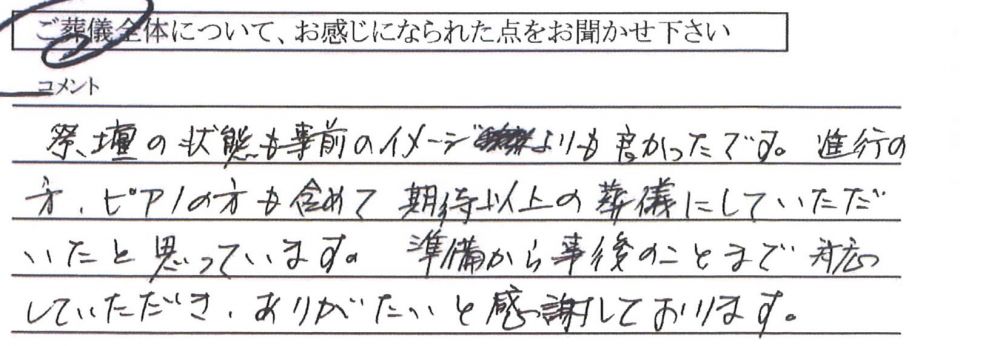 ご葬儀全体について、お感じになられた点をお聞かせ下さい
コメント
祭壇の状態も事前のイメージよりも良かったです。進行の
方、ピアノの方も含めて期待以上の葬儀にしていただ
いたと思っています。準備から事後のことまで対応
していただき、ありがたいと感謝しております。